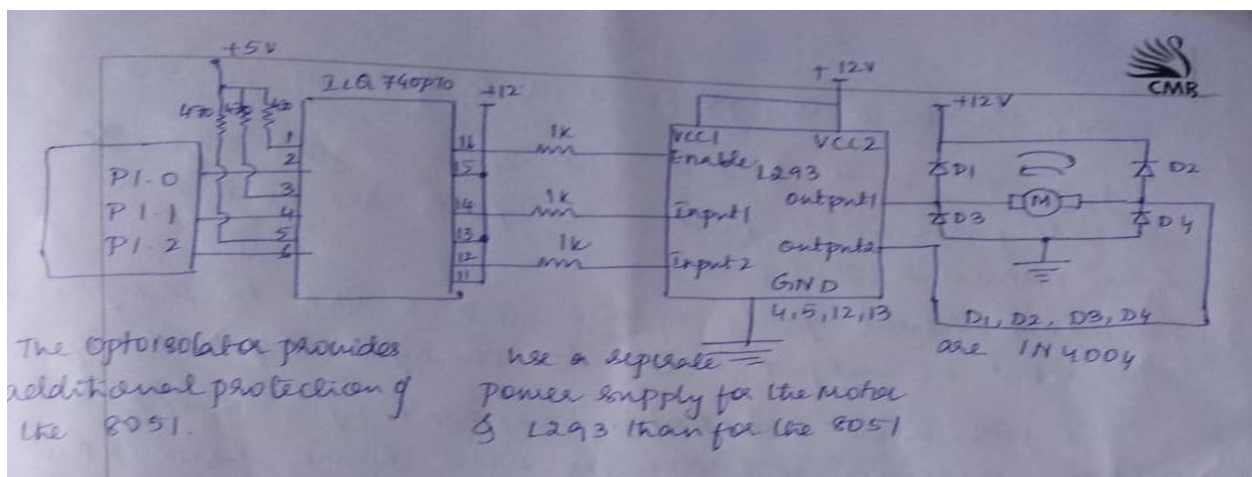 +5V
ILQ 740pto
+12
+12V
CMR
+12V
470
470
470
1
2
3
4
5
6
16
15
14
13
12
11
1K
1K
1K
P1.0
P1.1
P1.2
VCC1
VCC2
Enable
L293
Input1
Output1
Input2
Output2
GND
4,5,12,13
D1
D2
D3
D4
M
D1, D2, D3, D4
are IN4004
The optoisolator provides
additional protection of
the 8051.
use a seperate
power supply for the motor
& L293 than for the 8051